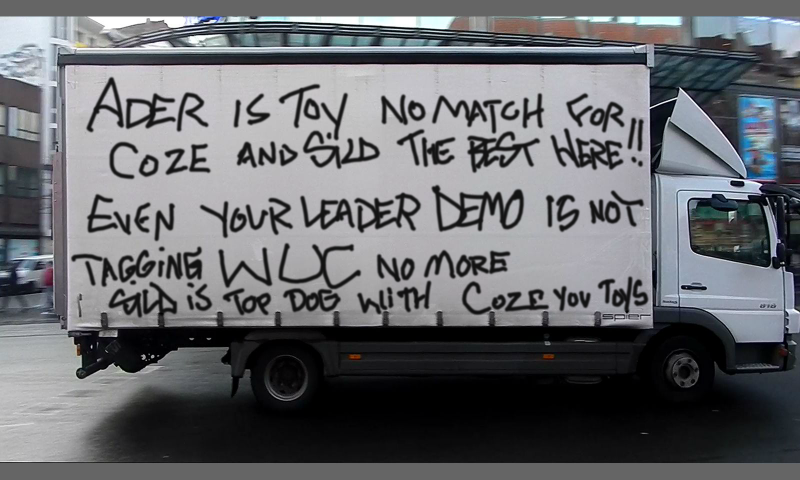 ADER IS TOY NO MATCH FOR
COZE AND SILD THE BEST WERE!!
EVEN YOUR LEADER DEMO IS NOT
TAGGING WUC NO MORE
SILD IS TOP DOG WITH COZE YOU TOYS
spier
818